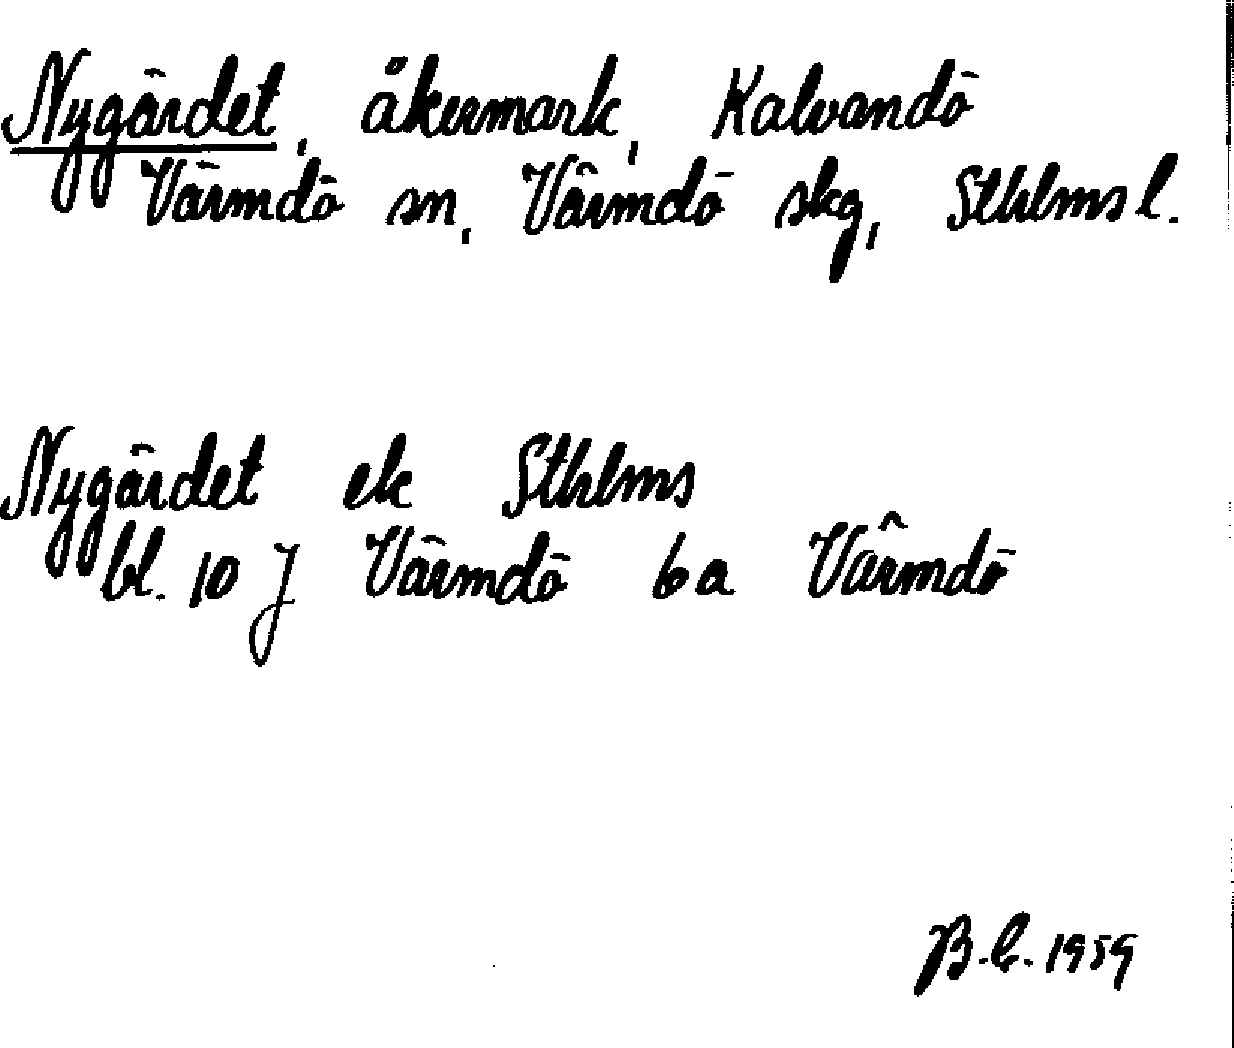 Nygärdet, åkermark, Kalvandö
Värmdö sn, Värmdö skg, Sthlms l.
Nygärdet ek Sthlms
bl. 10 J Värmdö 6a Värmdö
B.C. 1959